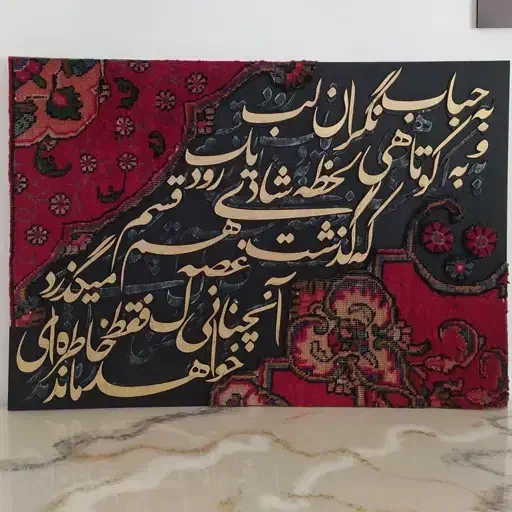 به حباب نگران لب
یک رود قسم
و به کوتاهی لحظه شادی
که گذشت
غصه هم میگذرد
آنچنانی که فقط خاطره ای
خواهد ماند